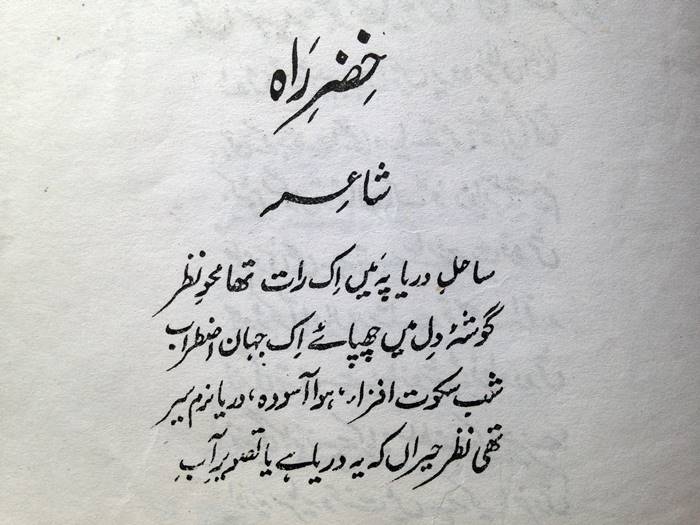 خِضرِ رَاہ
شاعِر
ساحلِ دریا پہ مَیں اِک رات تھا محوِ نظر
گوشۂ دِل میں چھپائے اِک جہانِ اضطراب
شب سکوت افزا، ہوا آسودہ، دریا نرم سیر
تھی نظر حیراں کہ یہ دریا ہے یا تصویرِ آب